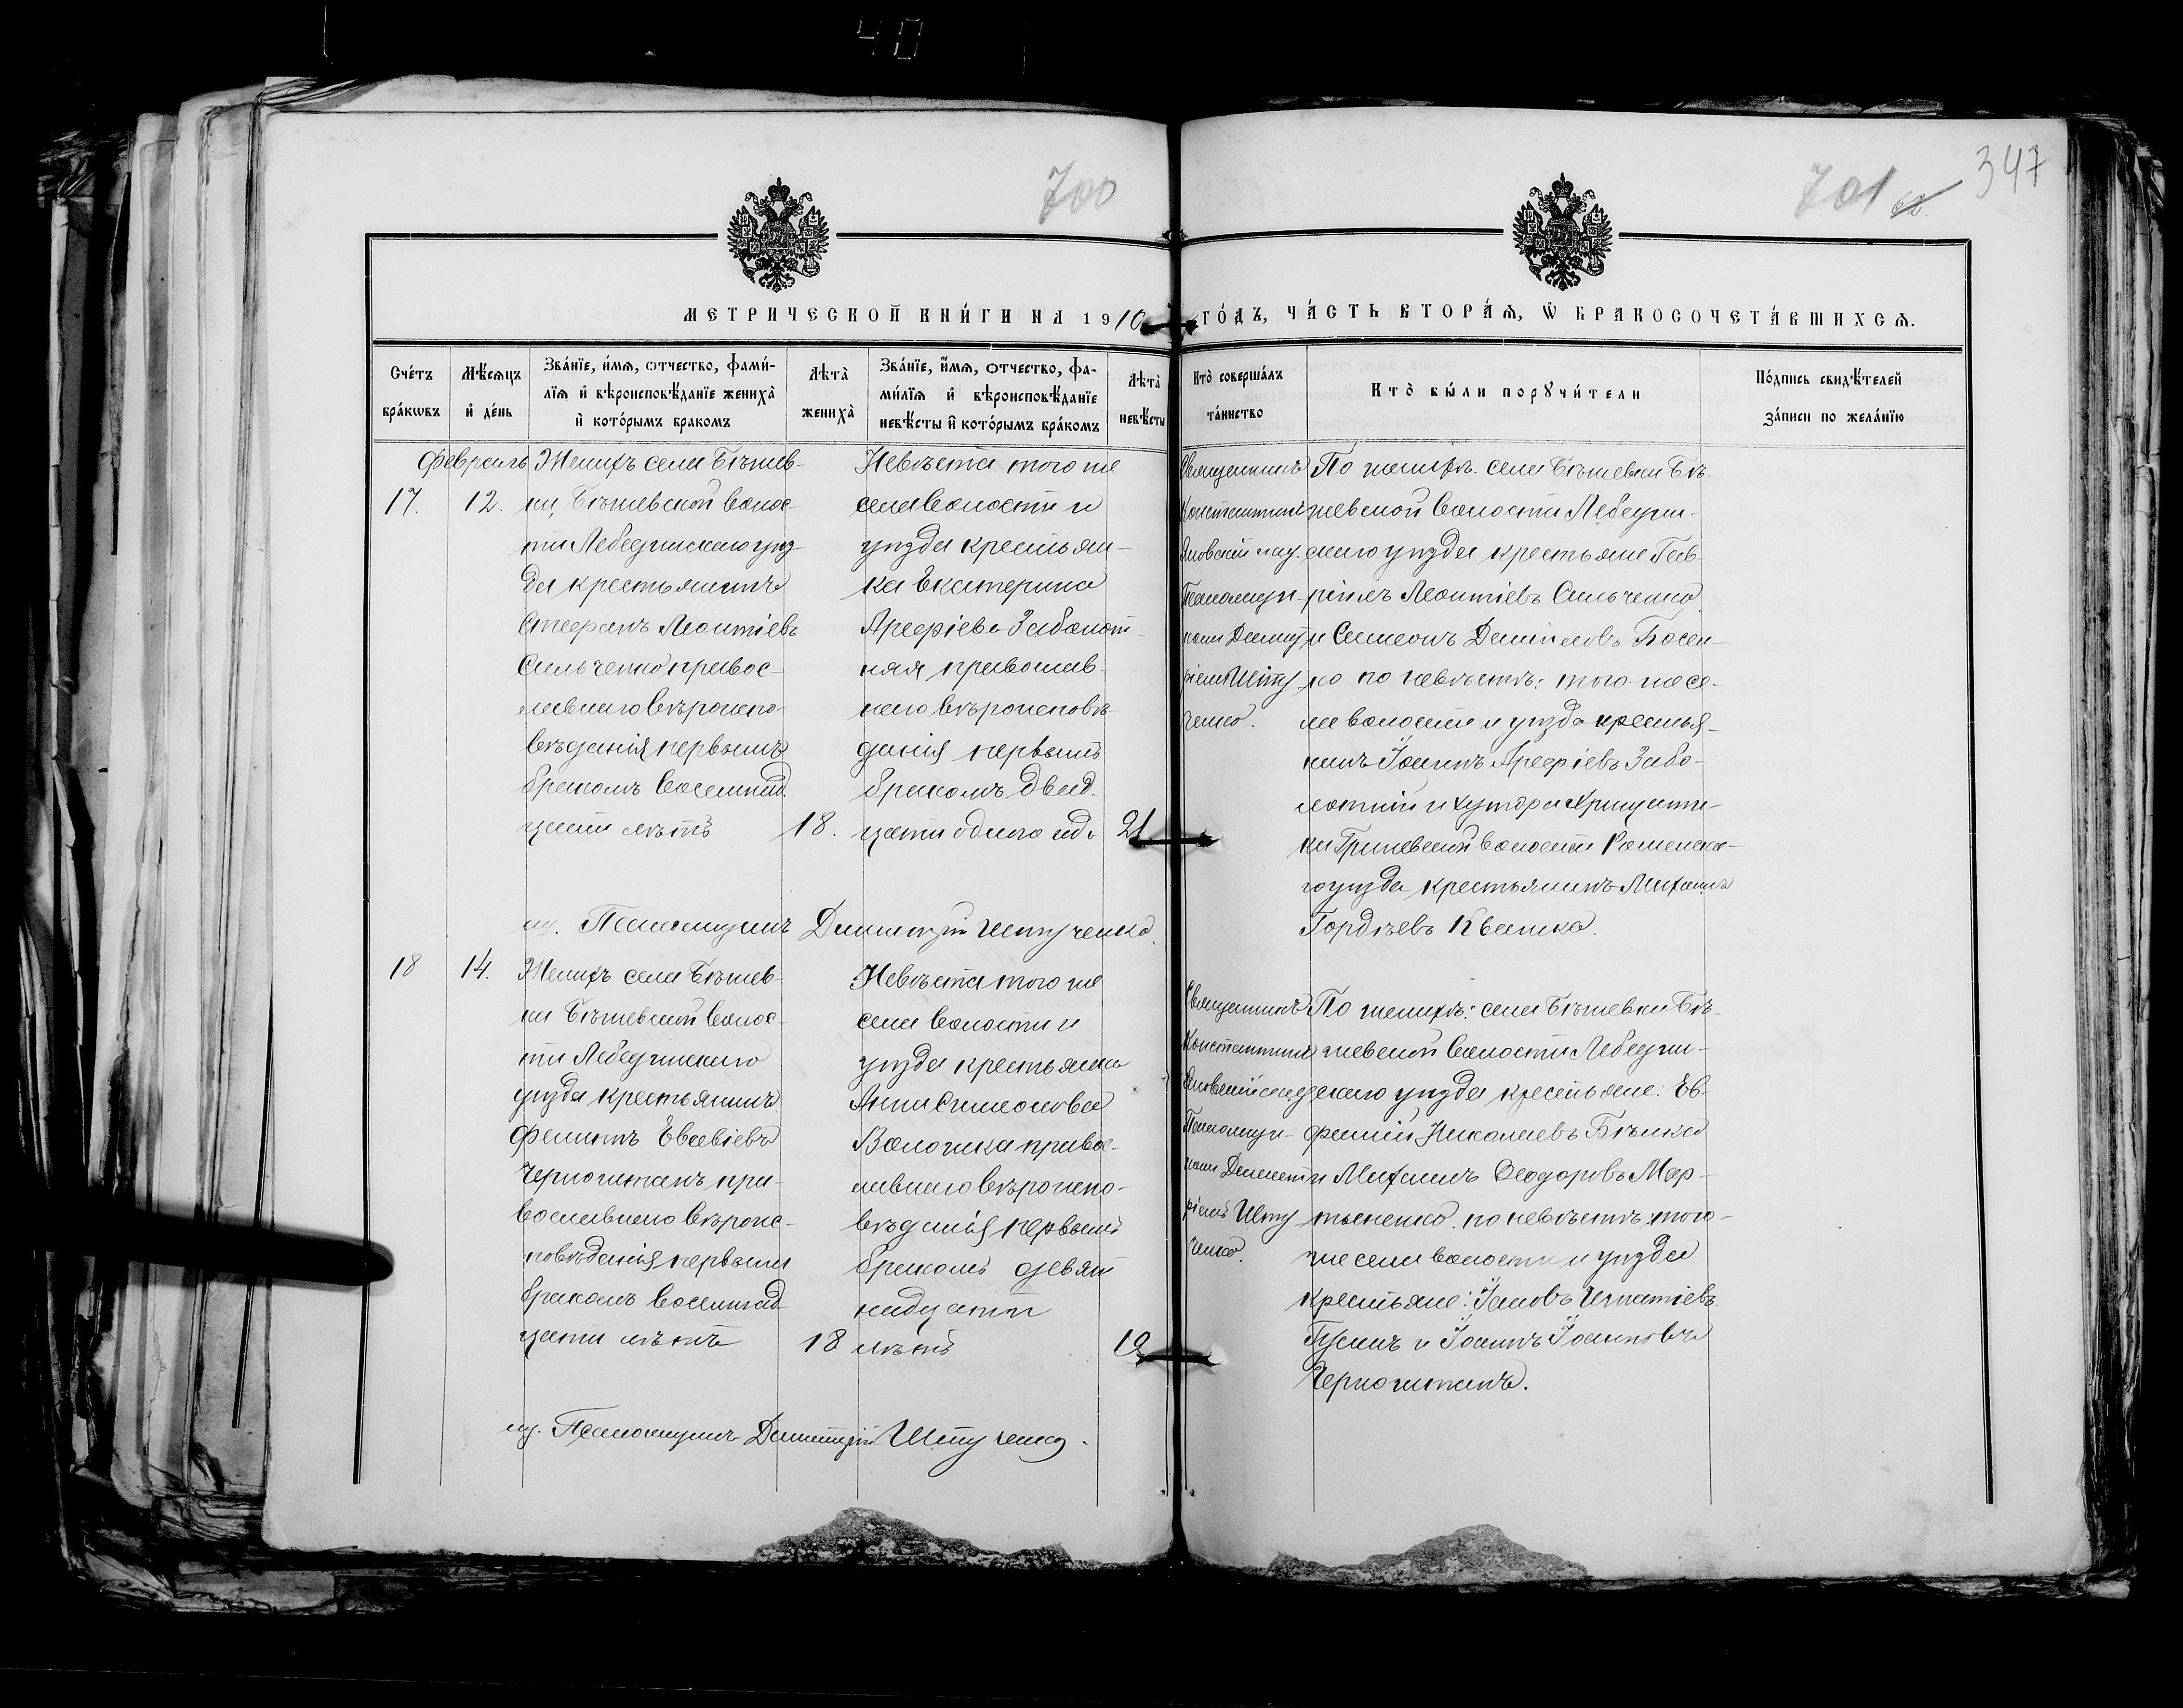 40
700
701
347
МЕТРИЧЕСКОЙ КНИ́ГИ НА 1910
ГО́ДЪ, ЧА́СТЬ ВТОРА́Ѧ, Ѿ БРАКОСОЧЕТА́ВШИХСѦ.
Сче́тъ бра́кѡвъ
Мѣ́сѧцъ и҆ де́нь
Зва́нїе, и҆́мѧ, ѻтчество, фами́-
лїѧ и҆ вѣроисповѣ́данїе жениха̀
и҆ кото́рымъ бракомъ
Лѣта̀ жениха̀
Зва́нїе, и҆́мѧ, ѻтчество, фа-
ми́лїѧ и҆ вѣроисповѣ́данїе
невѣ́сты и҆ кото́рымъ бра́комъ
Лѣта̀ невѣ́сты
Кто̀ соверша́лъ та́инство
Кто̀ бы́ли порꙋчи́тели
По́дпись свидѣ́телей за́писи по жела́нїю
Февраль
17.
12.
Женихъ села Бѣжев-
ки, Бѣжевской волос-
ти Лебединскаго уѣз-
да крестьянинъ
Стефанъ Леонтіевъ
Сильченко правос-
лавнаго вѣроиспо-
вѣданія первымъ
бракомъ восемнад-
цати лѣтъ
18.
Невѣста того же
села волости и
уѣзда крестьян-
ка Екатерина
Арефіева Заболот-
ная православ-
наго вѣроисповѣ-
данія первымъ
бракомъ двад-
цати одного года
21
Священникъ
Константинъ
Яновскій
Псаломщи-
комъ Димит-
ріемъ Шту-
ченко.
По женихѣ: села Бѣжевки Бѣ-
жевской волости Лебедин-
скаго уѣзда крестьяне Гав-
ріилъ Леонтіевъ Сильченко
и Симеонъ Даніиловъ Босен-
ко по невѣстѣ: того же се-
ла волости и уѣзда крестья-
нинъ Іоаннъ Арефіевъ Забо-
лотній и хутора
ки Гриневской волости Роменска-
го уѣзда крестьянинъ Михаилъ
Гордѣевъ Квитка.
Псаломщикъ Димитрій Штученко.
18
14.
Женихъ села Бѣжев-
ки Бѣжевской волос-
ти Лебединскаго
уѣзда крестьянинъ
Филиппъ Евсевіевъ
Черноштанъ пра-
вославнаго вѣроис-
повѣданія первымъ
бракомъ восемнад-
цати лѣтъ
18
Невѣста того же
села волости и
уѣзда крестьянка
Анна Симеонова
Волошка правос-
лавнаго вѣроиспо-
вѣданія первымъ
бракомъ девят-
надцати
лѣтъ
19
Священникъ
Константинъ
Яновскій
Псаломщи-
комъ Димит-
ріемъ Шту-
ченко.
По женихѣ: села Бѣжевки Бѣ-
жевской волости Лебедин-
скаго уѣзда крестьяне: Ев-
фимій Николаевъ Бѣлка
и Михаилъ Ѳеодоровъ Мар-
тыненко. по невѣстѣ: того
же села волости и уѣзда
крестьяне: Іаковъ Игнатіевъ
и Іоаннъ Іоанновъ
Черноштанъ.
Псаломщикъ Димитрій Штученко.